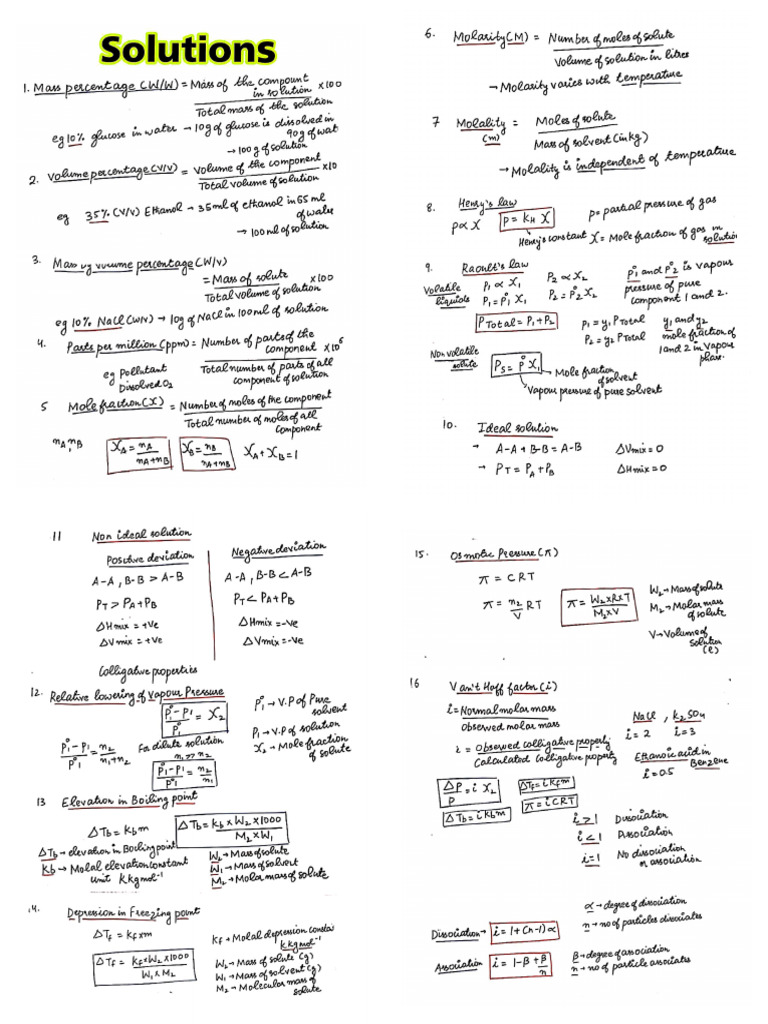 Solutions
1. Mass percentage (W/W) = Mass of the compount in solution ×100
Total mass of the solution
eg 10% glucose in water → 10g of glucose is dissolved in 90g of wat
→ 100 g of solution
2. Volume percentage (V/V) = Volume of the component ×10
Total volume of solution
eg 35% (V/V) Ethanol → 35 ml of ethanol in 65 ml of water
→ 100 ml of solution
3. Mass by volume percentage (W/V)
= Mass of solute ×100
Total volume of solution
eg 10% NaCl (W/V) → 10g of NaCl in 100 ml of solution
4. Parts per million (ppm) = Number of parts of the component ×10⁶
Total number of parts of all component of solution
eg Pollutant
Dissolved O₂
5 Mole fraction (X) = Number of moles of the component
Total number of moles of all component
nA, nB
XA = nA/nA+nB XB = nB/nA+nB XA + XB = 1
6. Molarity (M) = Number of moles of solute
Volume of solution in litres
→ Molarity varies with temperature
7 Molality (m) = Moles of solute
Mass of solvent (in kg)
→ Molality is independent of temperature
8. Henry's law
p∝X p = KH X p = partial pressure of gas
Henry's constant X = Mole fraction of gas in solution
9. Raoult's law
Volatile liquids P₁ ∝ X₁ P₂ ∝ X₂ P₁° and P₂° is vapour
P₁ = P₁° X₁ P₂ = P₂° X₂ pressure of pure component 1 and 2.
PTotal = P₁ + P₂ P₁ = y₁ PTotal y₁ and y₂
P₂ = y₂ PTotal mole fraction of 1 and 2 in vapour phase.
Non volatile solute Ps = P° X₁ → Mole fraction of solvent
Vapour pressure of pure solvent
10. Ideal solution
→ A-A + B-B = A-B ΔVmix = 0
→ PT = PA + PB ΔHmix = 0
11 Non ideal solution
Positive deviation Negative deviation
A-A, B-B > A-B A-A, B-B < A-B
PT > PA + PB PT < PA + PB
ΔHmix = +ve ΔHmix = -ve
ΔVmix = +ve ΔVmix = -ve
Colligative properties
12. Relative lowering of Vapour Pressure
P₁° - P₁/P₁° = X₂ P₁° → V.P of Pure solvent
P₁ → V.P of solution
X₂ → Mole fraction of solute
P₁° - P₁/P₁° = n₂/n₁+n₂ For dilute solution
n₁ >> n₂
P₁° - P₁/P₁° = n₂/n₁
13 Elevation in Boiling point
ΔTb = Kb m ΔTb = Kb × W₂ × 1000/M₂ × W₁
ΔTb → elevation in Boiling point
Kb → Molal elevation constant
unit K kg mol⁻¹
W₂ → Mass of solute
W₁ → Mass of solvent
M₂ → Molar mass of solute
14. Depression in Freezing point
ΔTf = Kf × m
ΔTf = Kf × W₂ × 1000/W₁ × M₂
Kf → Molal depression constan
K kg mol⁻¹
W₂ → Mass of solute (g)
W₁ → Mass of solvent (g)
M₂ → Molecular mass of solute
15. Osmotic Pressure (π)
π = CRT
π = n₂/V RT π = W₂ × R × T/M₂ × V
W₂ → Mass of solute
M₂ → Molar mass of solute
V → Volume of solution (l)
16 Van't Hoff factor (i)
i = Normal molar mass
Observed molar mass
i = Observed colligative property
Calculated colligative property
NaCl, K₂SO₄
i = 2 i = 3
Ethanoic acid in Benzene
i = 0.5
ΔP/P = i X₂ ΔTf = i Kf m
ΔTb = i Kb m π = i CRT
i > 1 Dissociation
i < 1 Association
i = 1 No dissociation or association
Dissociation → i = 1 + (n-1)α
α → degree of dissociation
n → no of particles dissociates
Association i = 1 - β + β/n
β → degree of association
n → no of particle associates